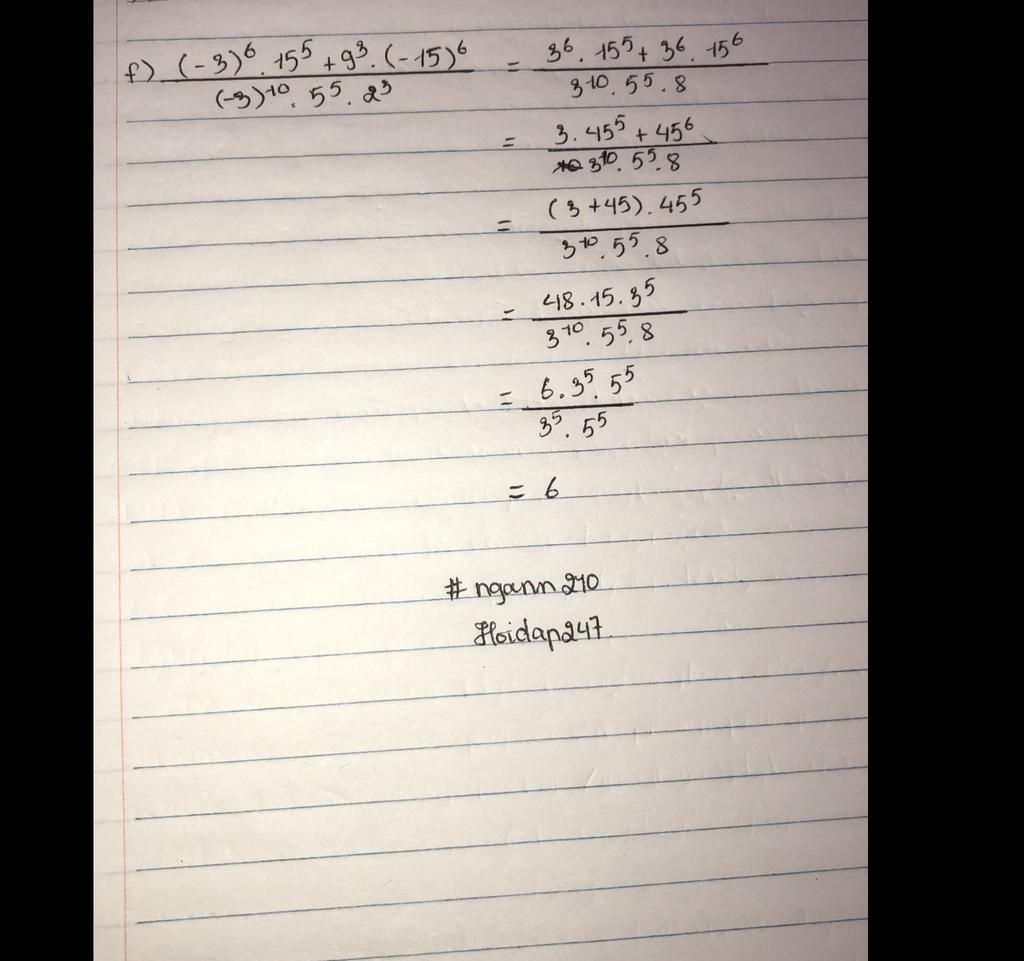 f) \frac{(-3)^6 . 15^5 + 9^3 . (-15)^6}{(-3)^{10} . 5^5 . 2^3} = \frac{3^6 . 15^5 + 3^6 . 15^6}{3^{10} . 5^5 . 8}
= \frac{3 . 45^5 + 45^6}{3^{10} . 5^5 . 8}
= \frac{(3 + 45) . 45^5}{3^{10} . 5^5 . 8}
= \frac{48 . 15 . 3^5}{3^{10} . 5^5 . 8}
= \frac{6 . 3^5 . 5^5}{3^5 . 5^5}
= 6
# ngann 210
Hoidap247